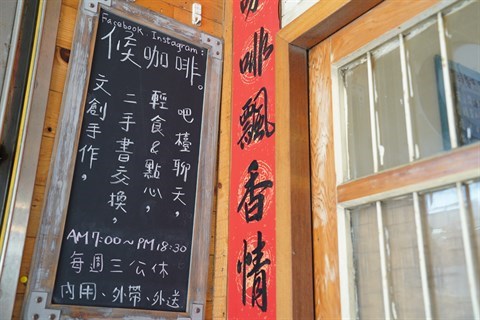 Facebook、Instagram:
候咖啡。
吧檯聊天，
輕食&點心，
二手書交換，
文創手作，
AM7:00~PM18:30
每週三公休
內用、外帶、外送
咖啡飄香情